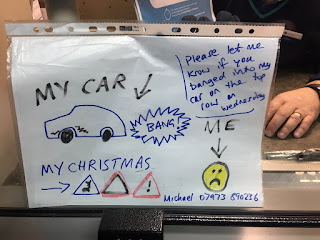 MY CAR
BANG!
Please let me
know if you
banged into my
car on the top
row on
Wednesday
ME
MY CHRISTMAS
!
Michael 07973 890236